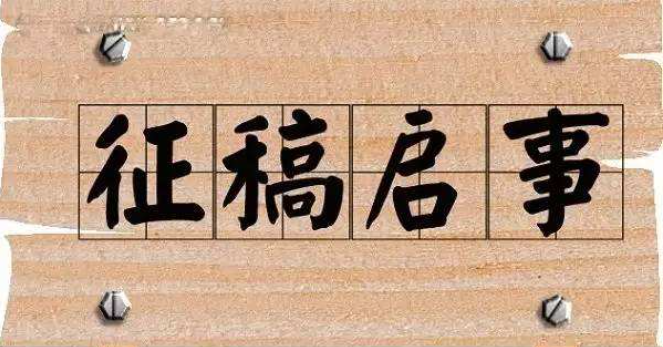 征稿启事